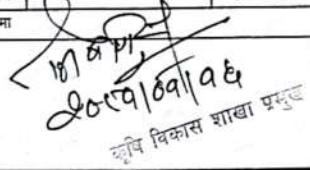 मा
२०८१।०१।१६
कृषि विकास शाखा प्रमुख